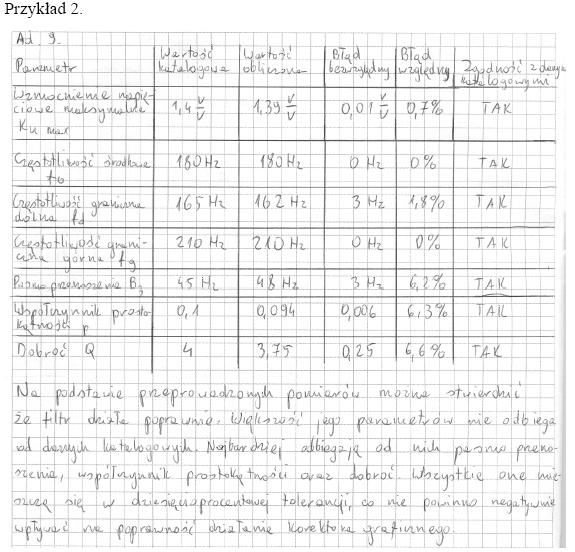 Przykład 2.
Ad. 9.
Parametr | Wartość katalogowa | Wartość obliczona | Błąd bezwzględny | Błąd względny | Zgodność z danymi katalogowymi
Wzmocnienie napięciowe maksymalne Ku max | 1,4 V/V | 1,39 V/V | 0,01 V/V | 0,7% | TAK
Częstotliwość środkowa f0 | 180 Hz | 180 Hz | 0 Hz | 0% | TAK
Częstotliwość graniczna dolna fd | 165 Hz | 162 Hz | 3 Hz | 1,8% | TAK
Częstotliwość graniczna górna fg | 210 Hz | 210 Hz | 0 Hz | 0% | TAK
Pasmo przenoszenia B3 | 45 Hz | 48 Hz | 3 Hz | 6,2% | TAK
Współczynnik prostokątności p | 0,1 | 0,094 | 0,006 | 6,3% | TAK
Dobroć Q | 4 | 3,75 | 0,25 | 6,6% | TAK
Na podstawie przeprowadzonych pomiarów można stwierdzić
że filtr działa poprawnie. Większość jego parametrów nie odbiega
od danych katalogowych. Najbardziej odbiegają od nich pasmo przeno-
szenia, współczynnik prostokątności oraz dobroć. Wszystkie one mie-
szczą się w dziesięcioprocentowej tolerancji, co nie powinno negatywnie
wpływać na poprawność działania korektora graficznego.